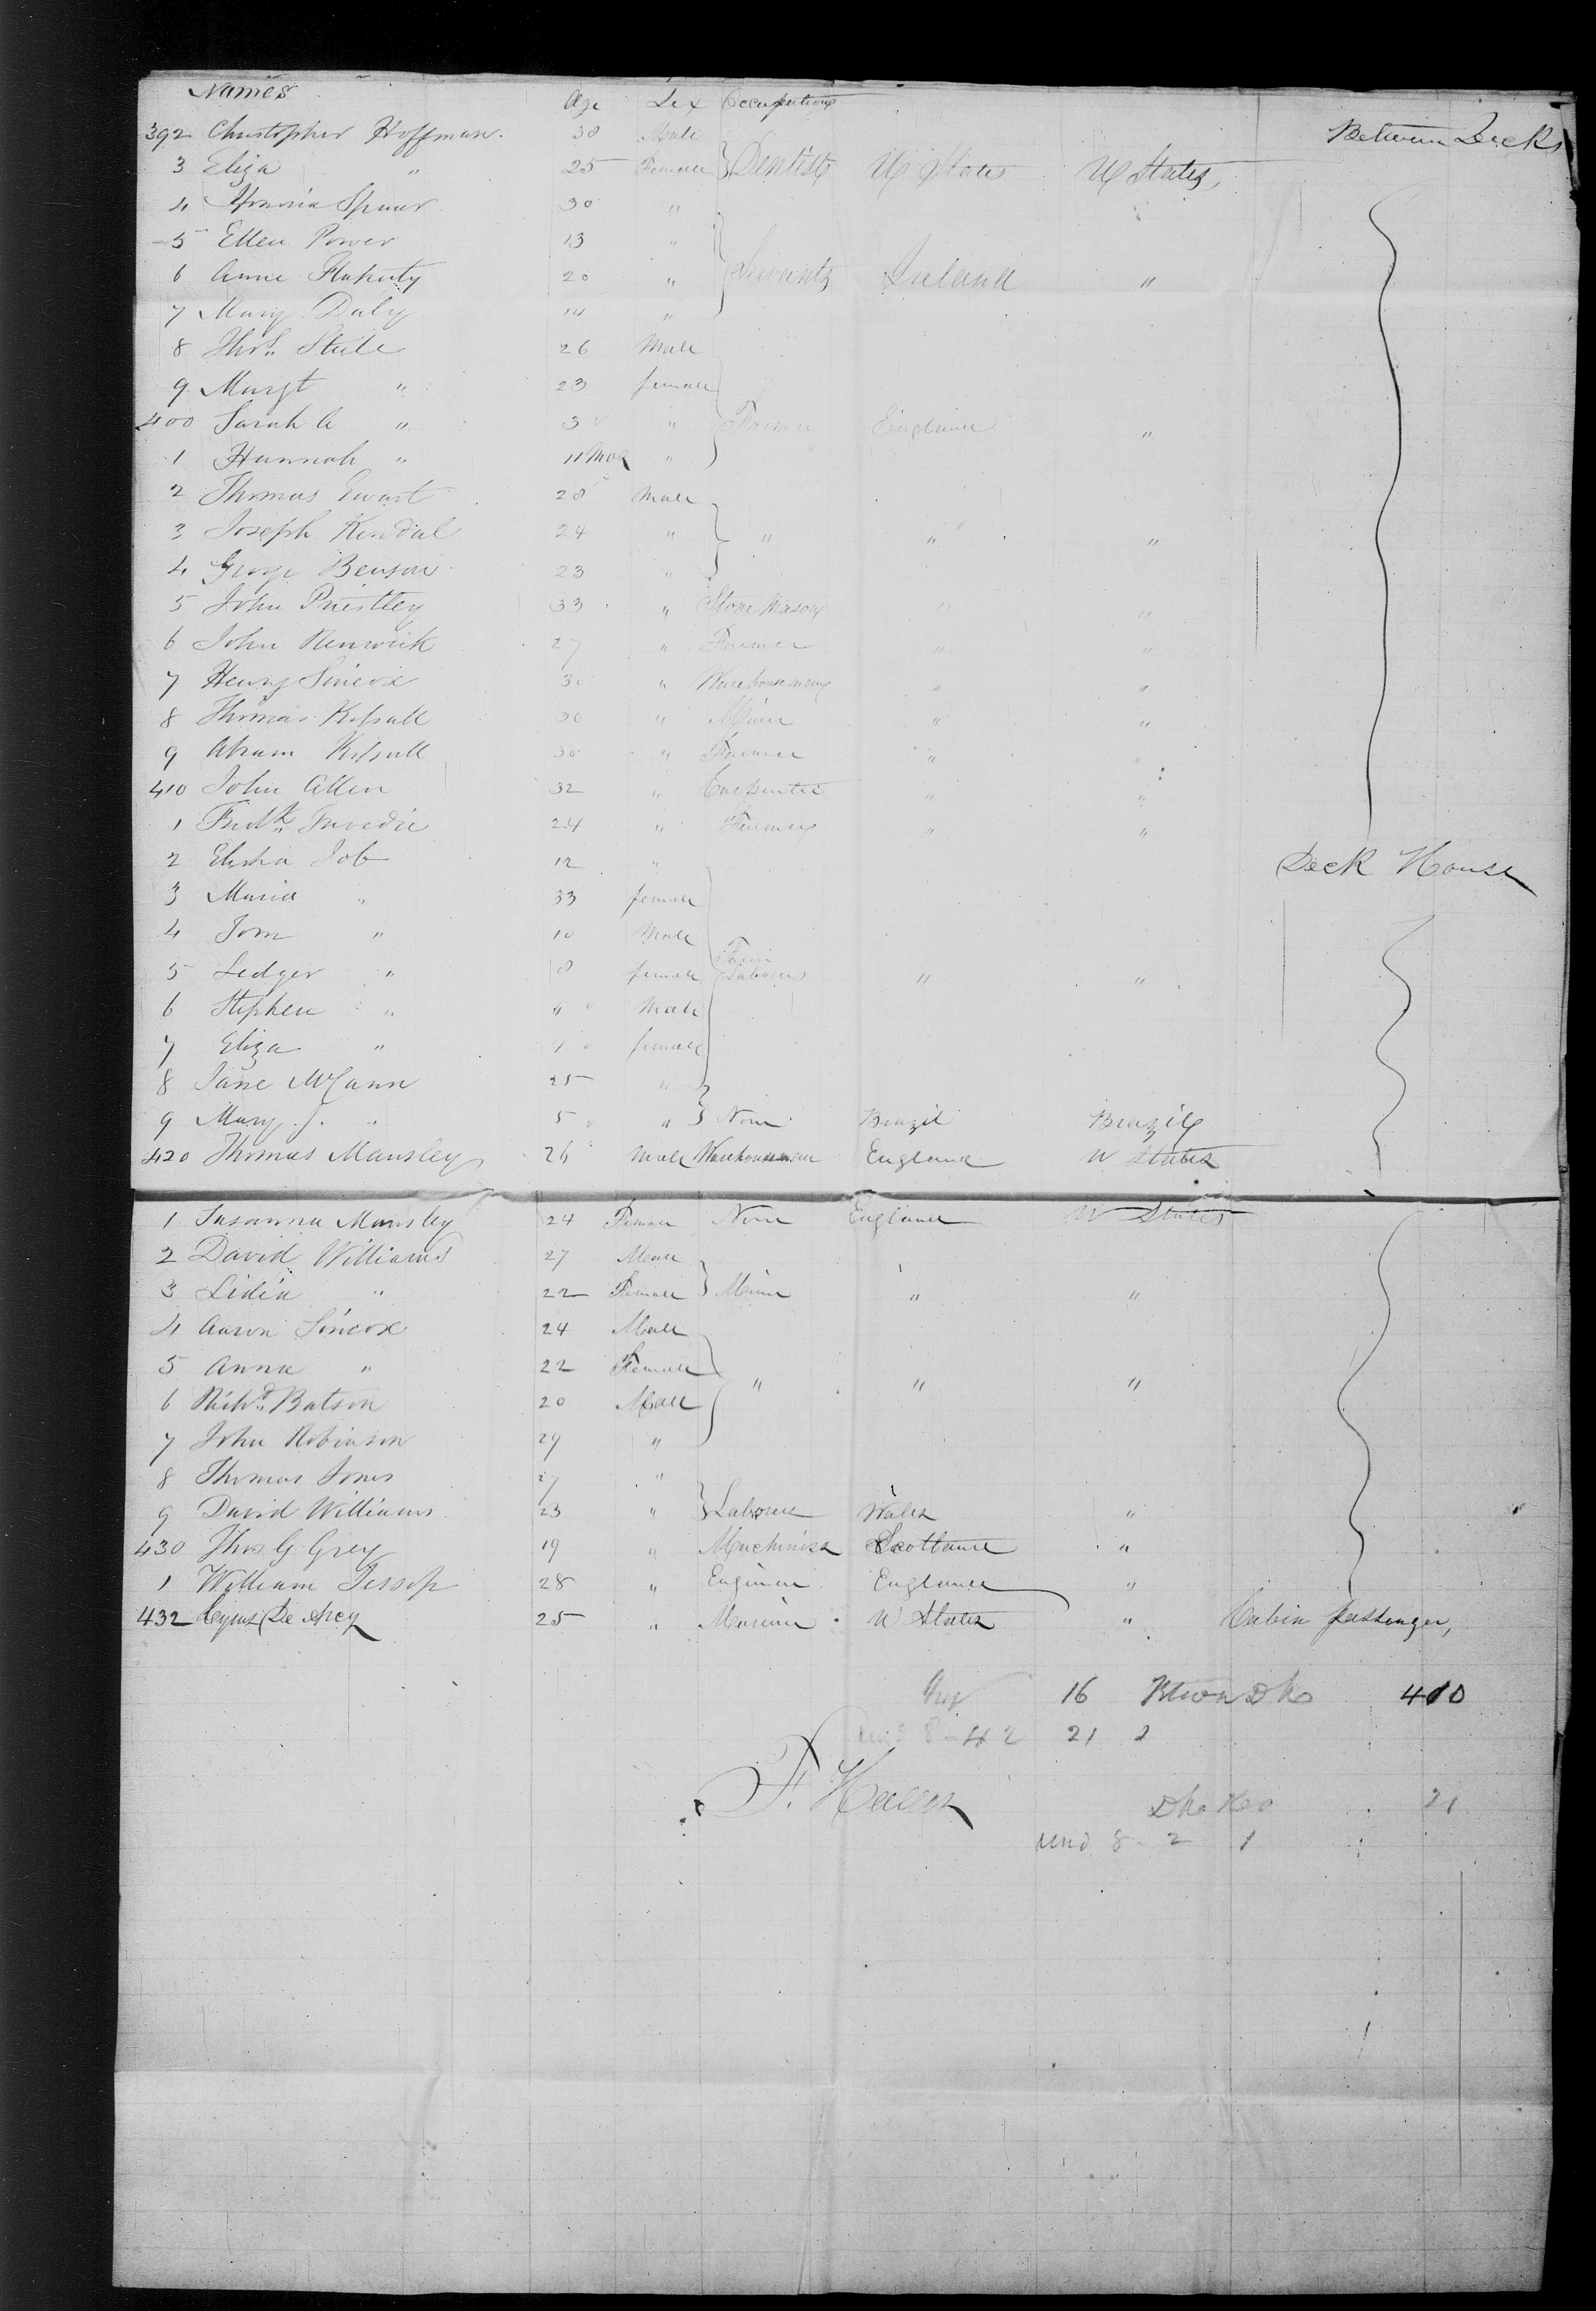 Names Age Sex Occupations
392 Christopher Hoffman. 38 Male Between Decks
3 Eliza " 25 Female } Dentist U States U States,
4 Spener 30 "
5 Ellen Power 13 "
6 Anne Flaherty 20 " Servants Ireland "
7 Mary Daly "
8 Thos. Stule 26 Male
9 Margt " 23 female
400 Sarah A " 3 " Farmer England "
1 Hannah " 11 Mos "
2 Thomas Ewart 28 Male
3 Joseph Kendal 24 " " " "
4 George Benson 23 "
5 John Priestley 33 " Stone Mason " "
6 John Renwick 27 " Farmer " "
7 Henry Sincox 30 " Warehouseman " "
8 Thomas Kelsall 30 " Miner " "
9 Abram Kelsall 30 " Farmer " "
410 John Allen 32 " Carpenter " "
1 Fredk. 24 " Farmer " "
2 Elisha Job 12 " Deck House
3 Maria " 33 female
4 Tom " 10 Male
5 Ledger " 8 female Farm Laborer " "
6 Stephen " Male
7 Eliza " 4 female
8 Jane McCann 25 "
9 Mary J. " 5 " } None Brazil Brazil
420 Thomas Mansley 26 Male Warehouseman England U States
1 Susanna Mansley 24 Female None England U States
2 David Williams 27 Male
3 Lidia " 22 Female } Miner " "
4 Aaron Sincox 24 Male
5 Anna " 22 Female
6 Richd. Batson 20 Male " " "
7 John Robinson 29 "
8 Thomas Jones 27 "
9 David Williams 23 " } Laborer Wales "
430 Thos G Grey 19 " Machinist Scotland "
1 William Jessop 28 " Engineer England "
432 Cyrus De Arcy 25 " Mariner U States " Cabin passenger,
16 Btwn Dks 410
und 8 - 42 21 2
F.
Dk Ho 21
und 8 - 2 1